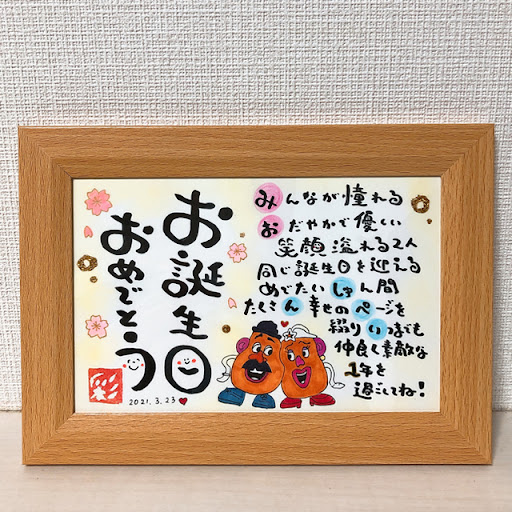 お誕生日
おめでとう
みんなが憧れる
おだやかで優しい
笑顔溢れる2人
同じ誕生日を迎える
めでたいしゅん間
たくさん幸せのページを
綴りいつまでも
仲良く素敵な
1年を
過ごしてね!
彩
2021.3.23